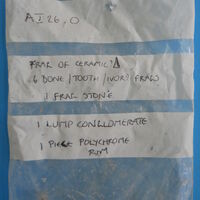 A I 26, O
FRAG OF CERAMIC
6 BONE / TOOTH / IVORY FRAGS
1 FRAG STONE
1 LUMP CONGLOMERATE
1 PIECE POLYCHROME
RIM